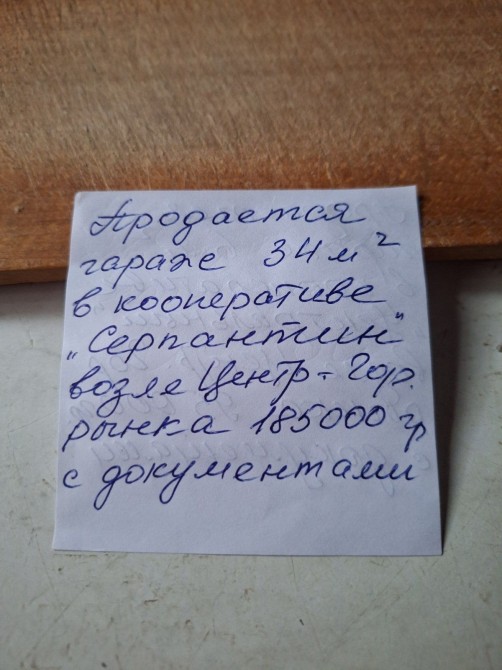 Продается
гараж 34 м²
в кооперативе
"Серпантин"
возле Центр. Гор.
рынка 185000 гр
с документами